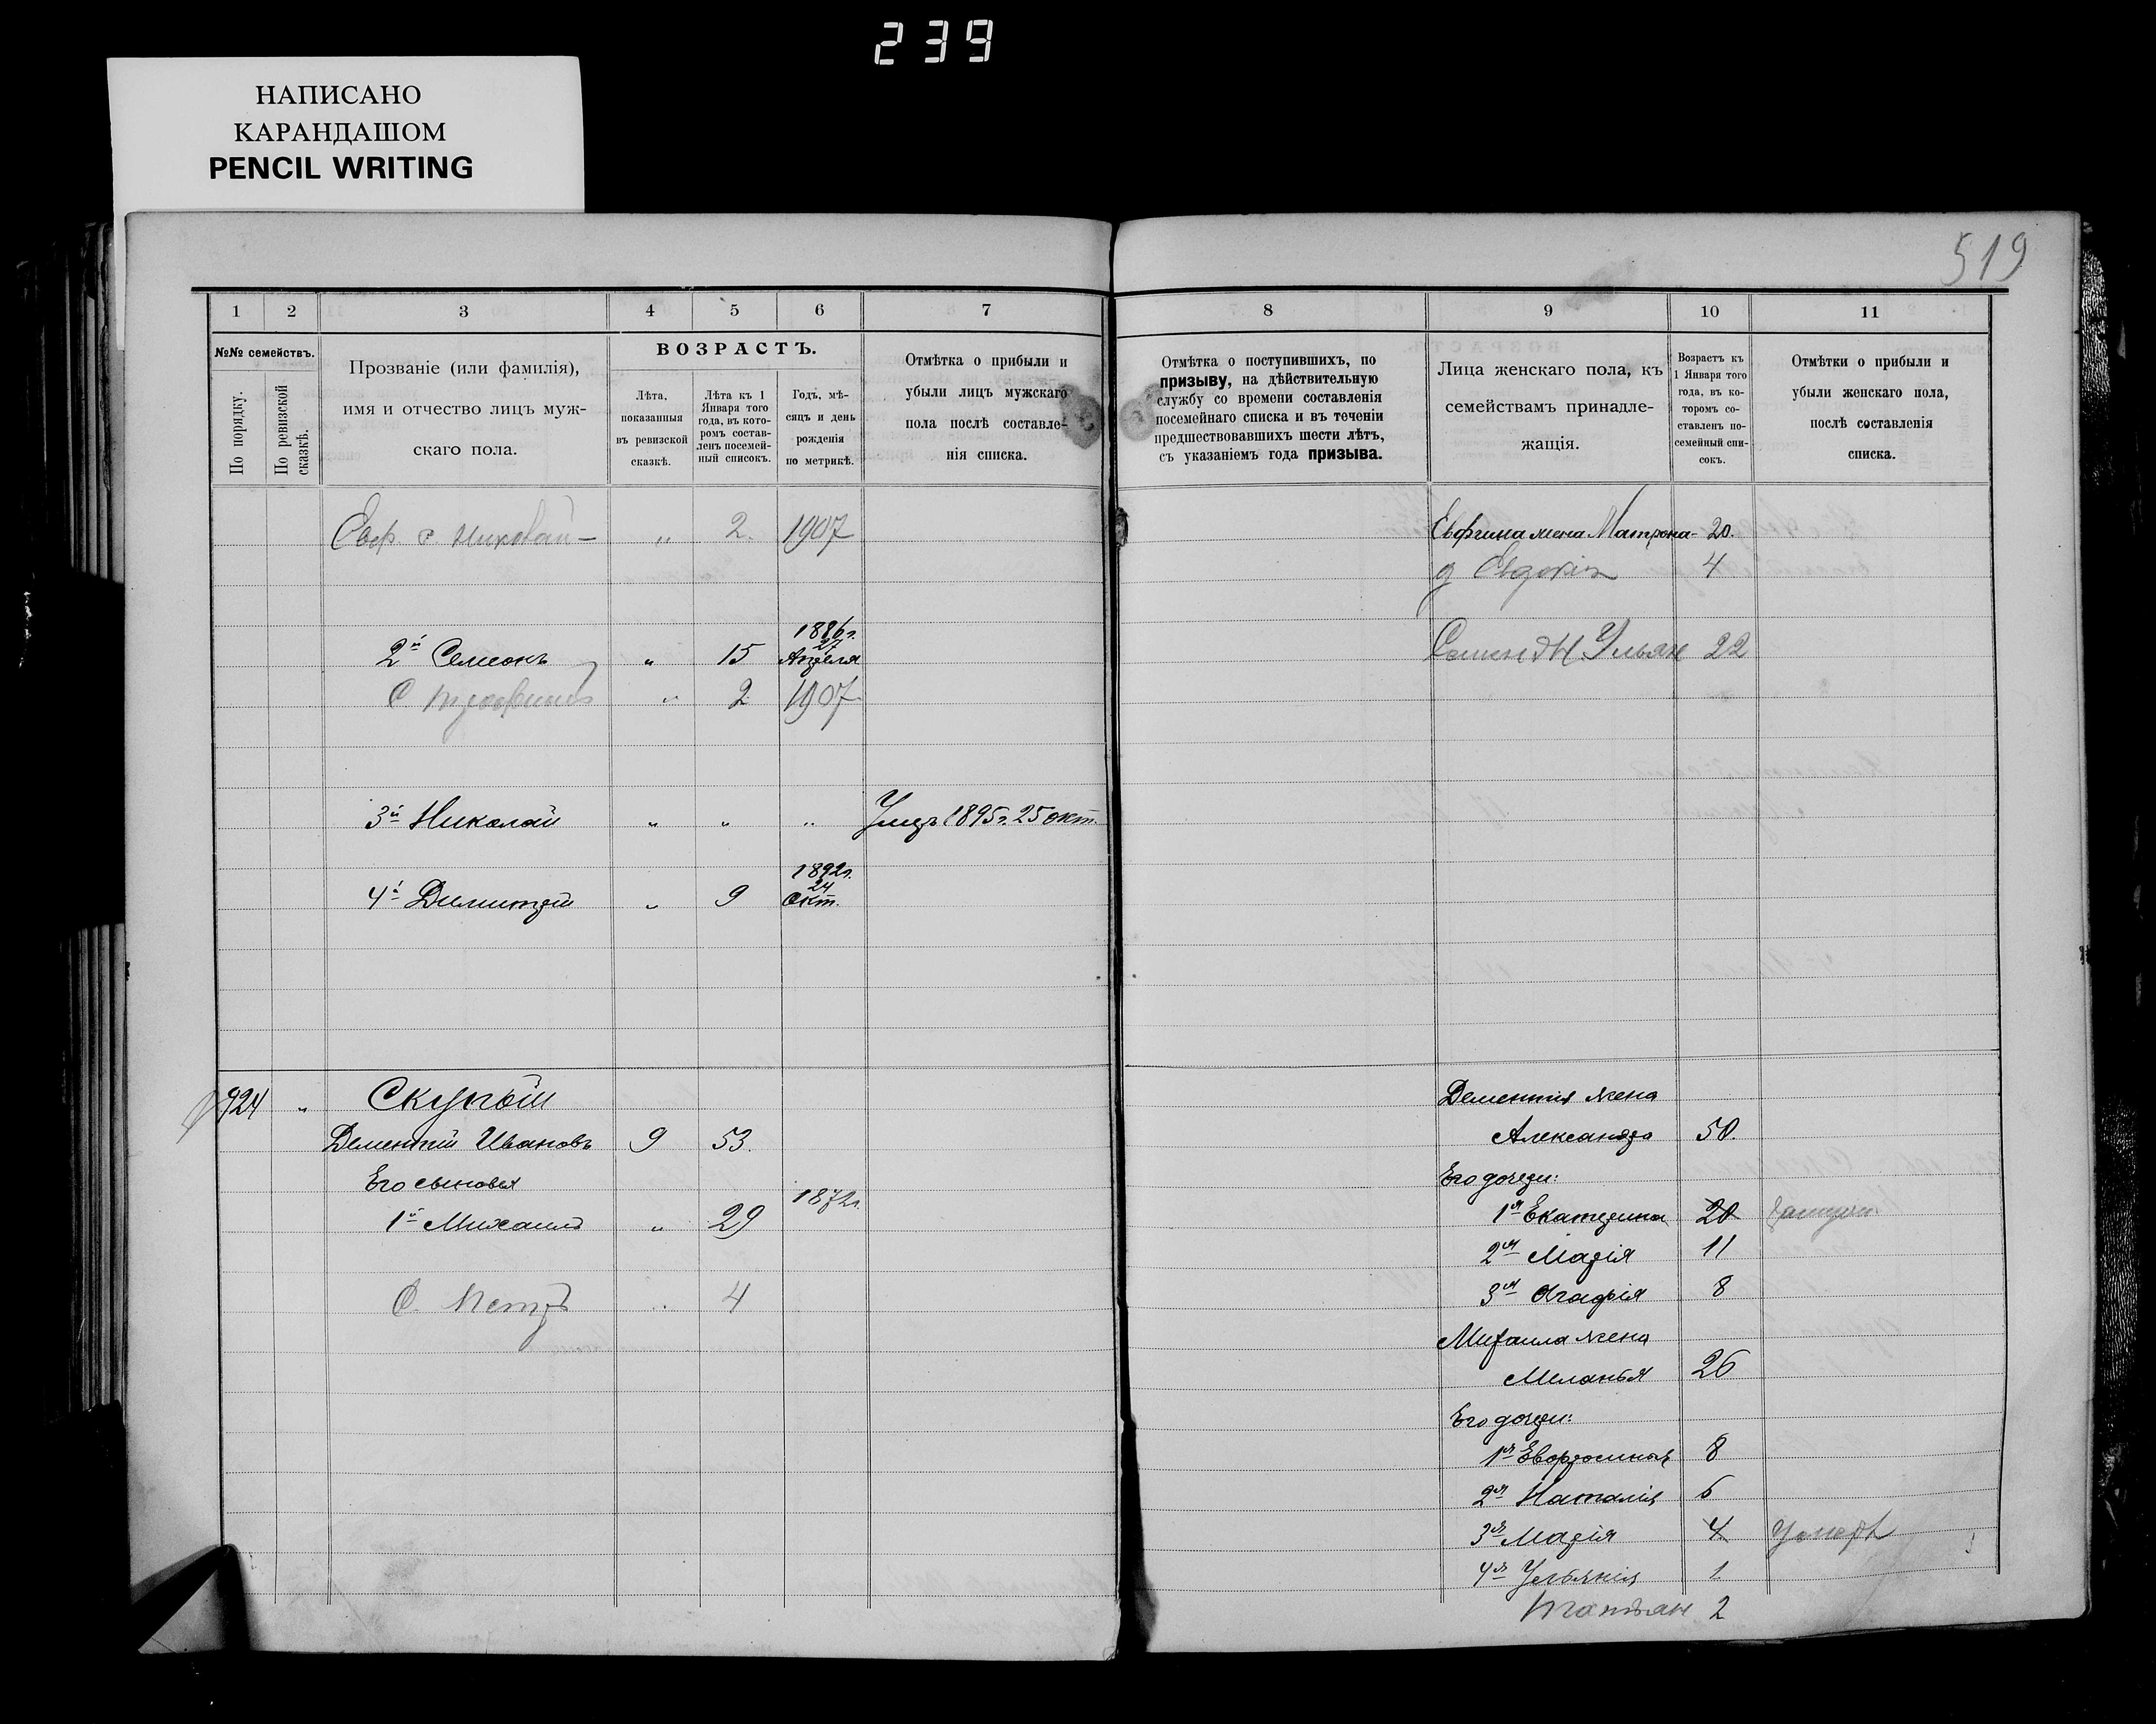 239
НАПИСАНО
КАРАНДАШОМ
PENCIL WRITING
519
1 2 3 4 5 6 7 8 9 10 11
№№ семействъ.
По порядку.
По ревизской сказкѣ.
Прозваніе (или фамилія),
имя и отчество лицъ муж-
скаго пола.
ВОЗРАСТЪ.
Лѣта,
показанныя
въ ревизской
сказкѣ.
Лѣта къ 1
Января того
года, въ кото-
ромъ состав-
ленъ посемей-
ный списокъ.
Годъ, мѣ-
сяцъ и день
рожденія
по метрикѣ.
Отмѣтка о прибыли и
убыли лицъ мужскаго
пола послѣ составле-
нія списка.
Отмѣтка о поступившихъ, по
призыву, на дѣйствительную
службу со времени составленія
посемейнаго списка и въ теченіи
предшествовавшихъ шести лѣтъ,
съ указаніемъ года призыва.
Лица женскаго пола, къ
семействамъ принадле-
жащія.
Возрастъ къ
1 Января того
года, въ ко-
торомъ со-
ставленъ по-
семейный спи-
сокъ.
Отмѣтки о прибыли и
убыли женскаго пола,
послѣ составленія
списка.
Евф с Николай — „ 2. 1907
Евфима жена Матрона - 20.
д Евдокія 4
1886г.
27
2й Семенъ „ 15 Апрѣля
Ульян 22
С „ 2 1907
3й Николай „ „ „ Умеръ 1895г. 25 окт.
1892г.
24
4й Димитрій „ 9 Окт.
924 „ Скупый
Дементій Ивановъ 9 53.
Его сыновья
1872г.
1й Михаилъ „ 29
С. Петръ „ 4
Дементія жена
Александра 50.
Его дочери:
1я Екатерина 20 Замужем
2я Марія 11
3я Агафія 8
Михаила жена
Меланья 26
Его дочери:
1я Евфросинья 8
2я Наталія 6
3я Марія 4 Умерла
4я Ульянія 1
Татьян 2